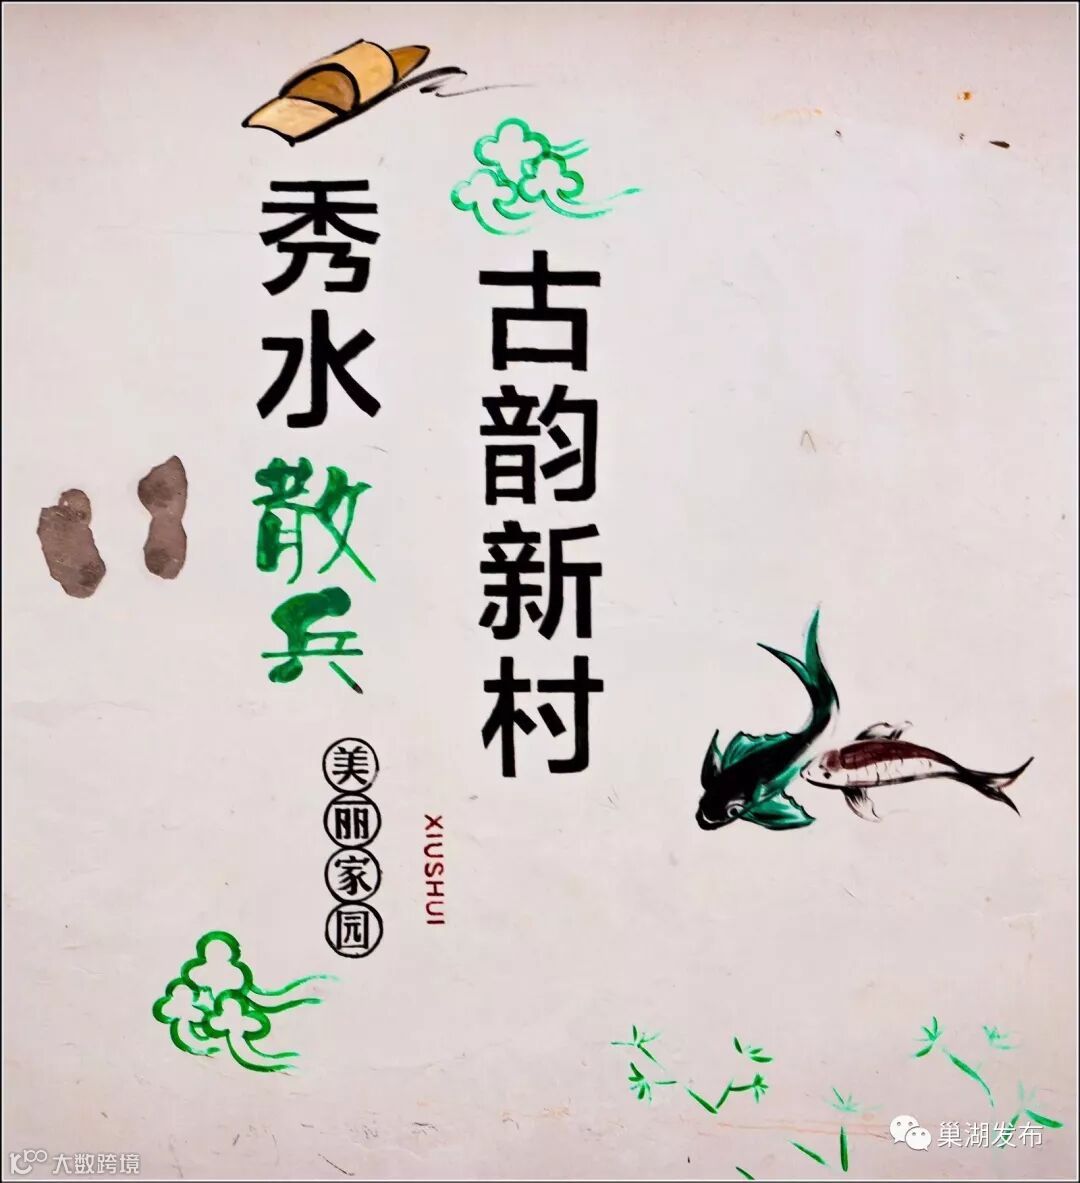 秀水散兵
古韵新村
美丽家园
XIUSHUI
巢湖发布
大数跨境